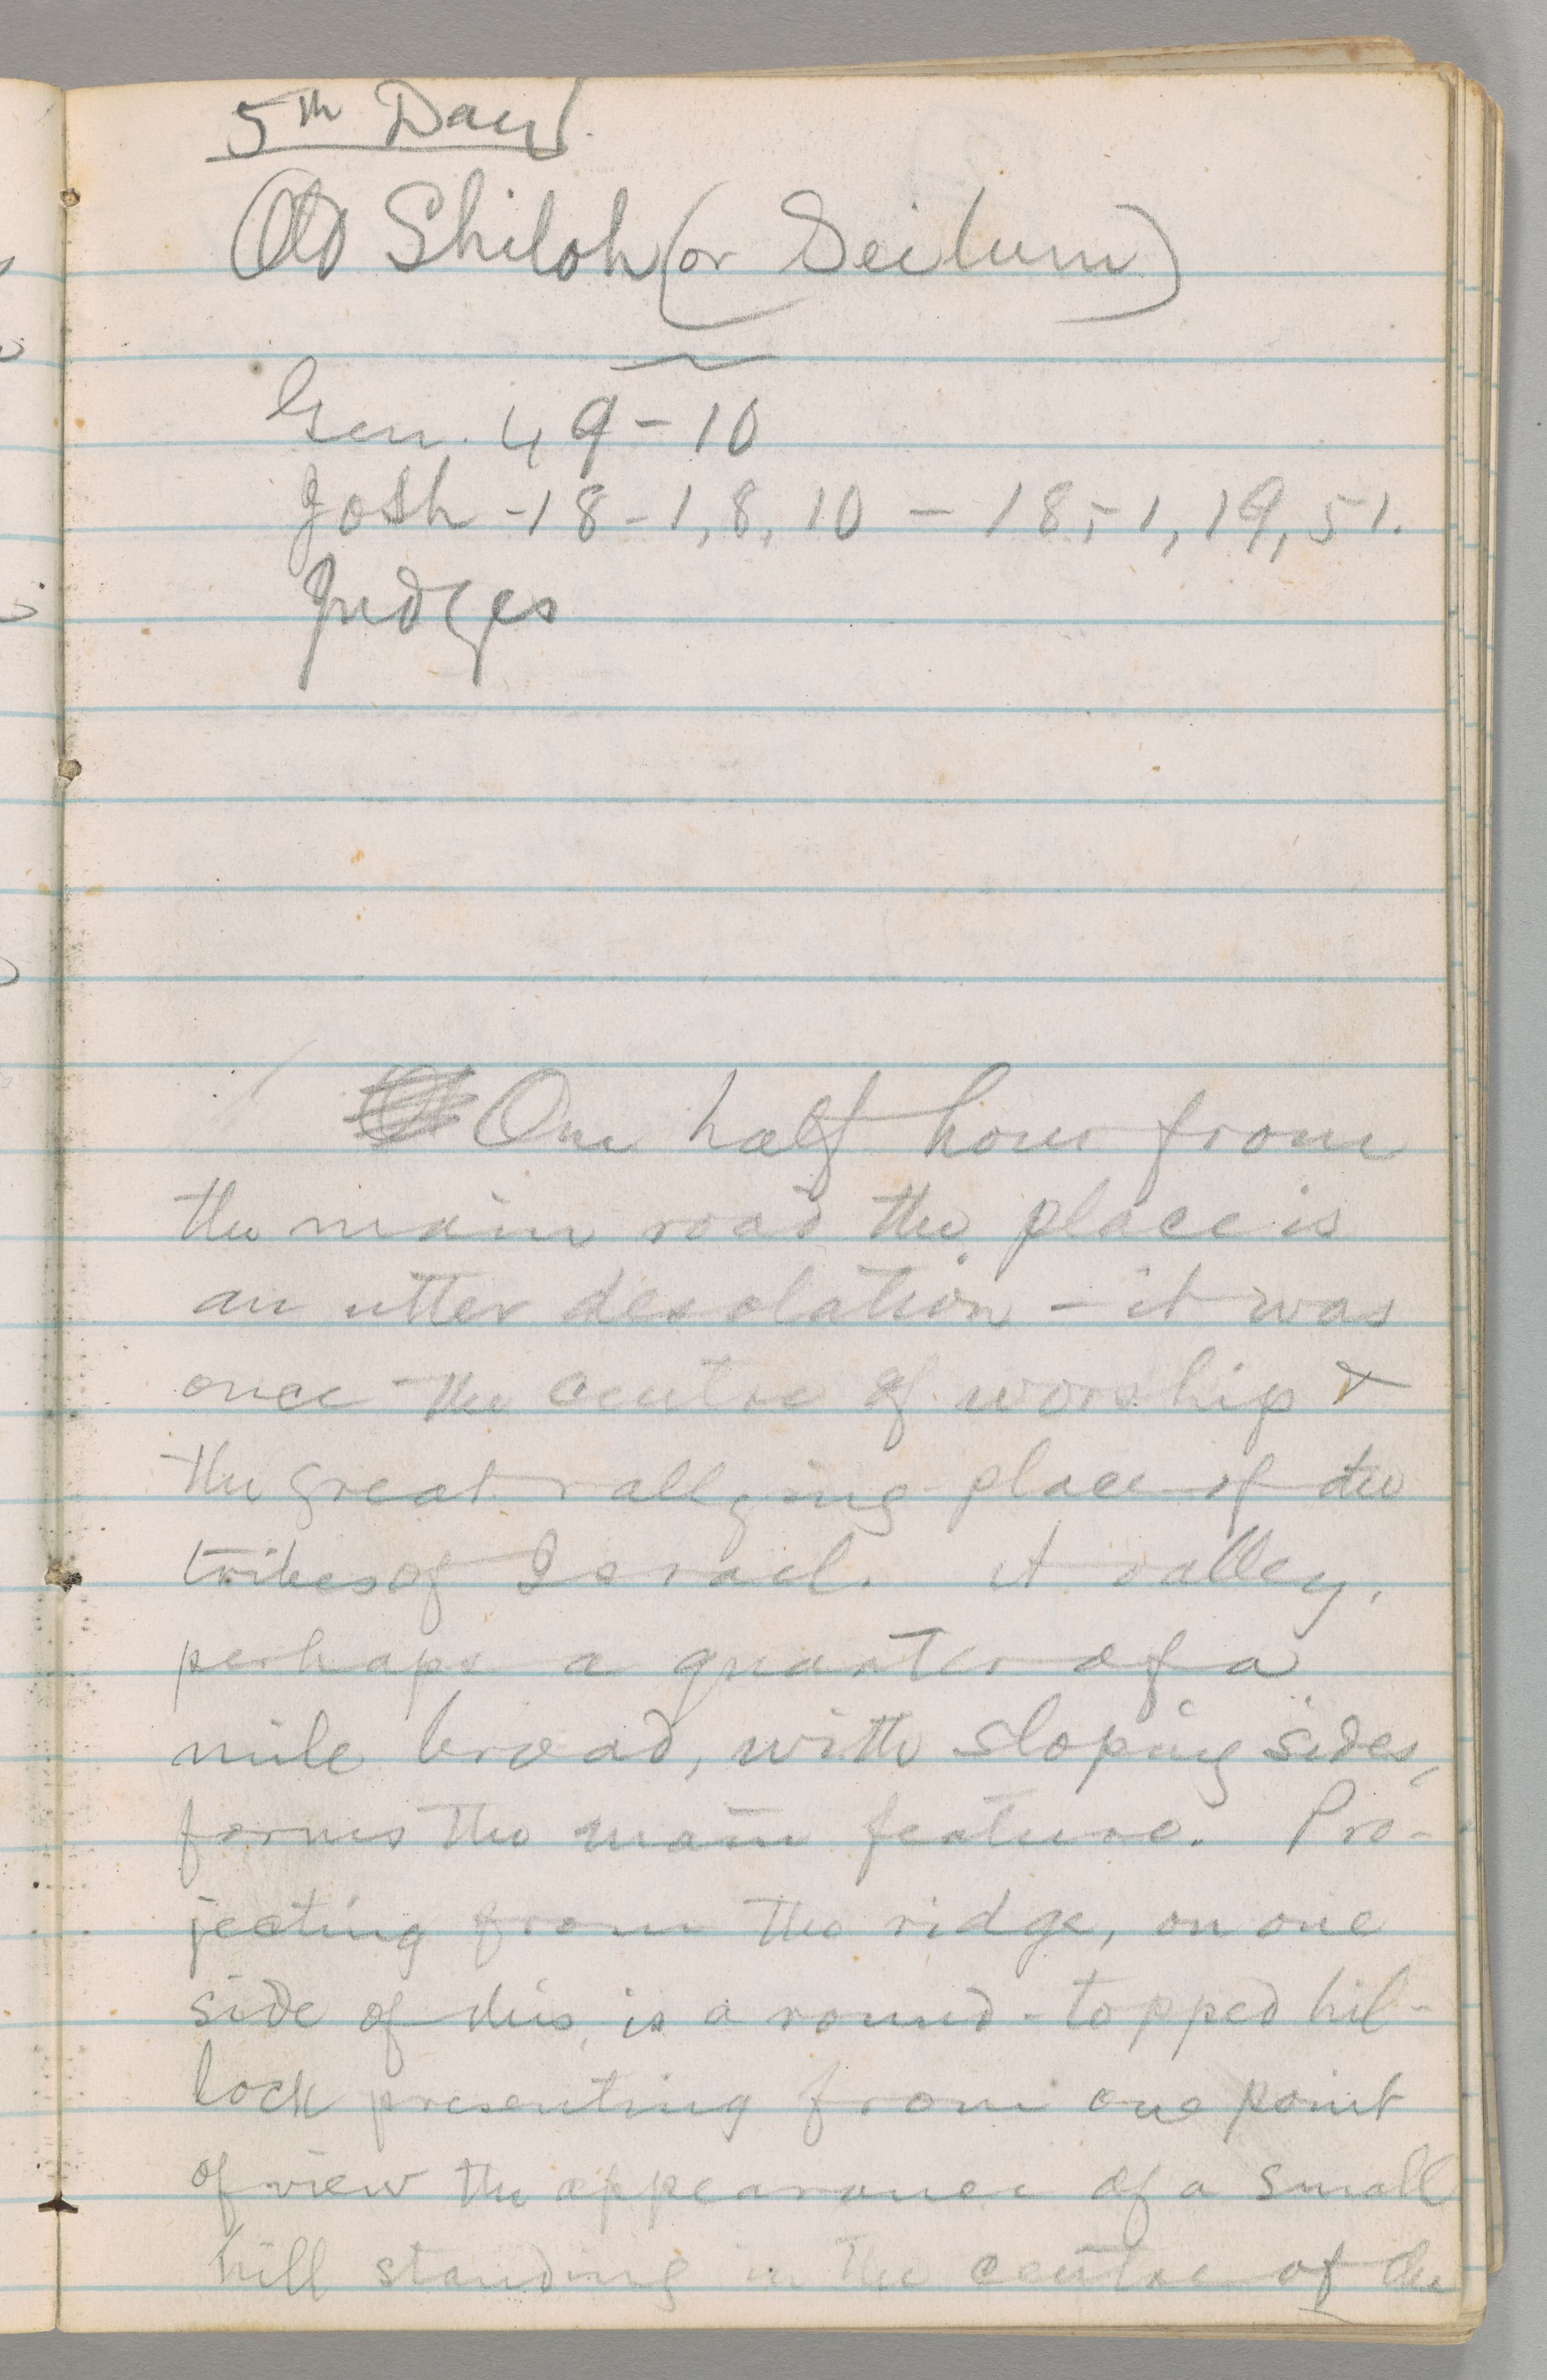 5th Day.
Old Shiloh (or Seilum)
Gen. 49-10
Josh -18-1,8,10 - 18,-1,19,51.
Judges
One half hour from
the main road the place is
an utter desolation - it was
once the centre of worship &
the great rallying place of the
tribes of Israel. A valley,
perhaps a quarter of a
mile broad, with sloping sides,
forms the main feature. Pro-
jecting from the ridge, on one
side of this, is a round-topped hil-
lock presenting from one point
of view the appearance of a small
hill standing in the centre of the